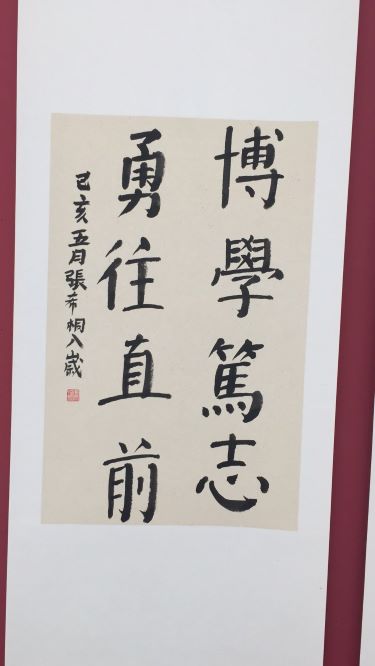 博學篤志
勇往直前
己亥五月張希桐八歲